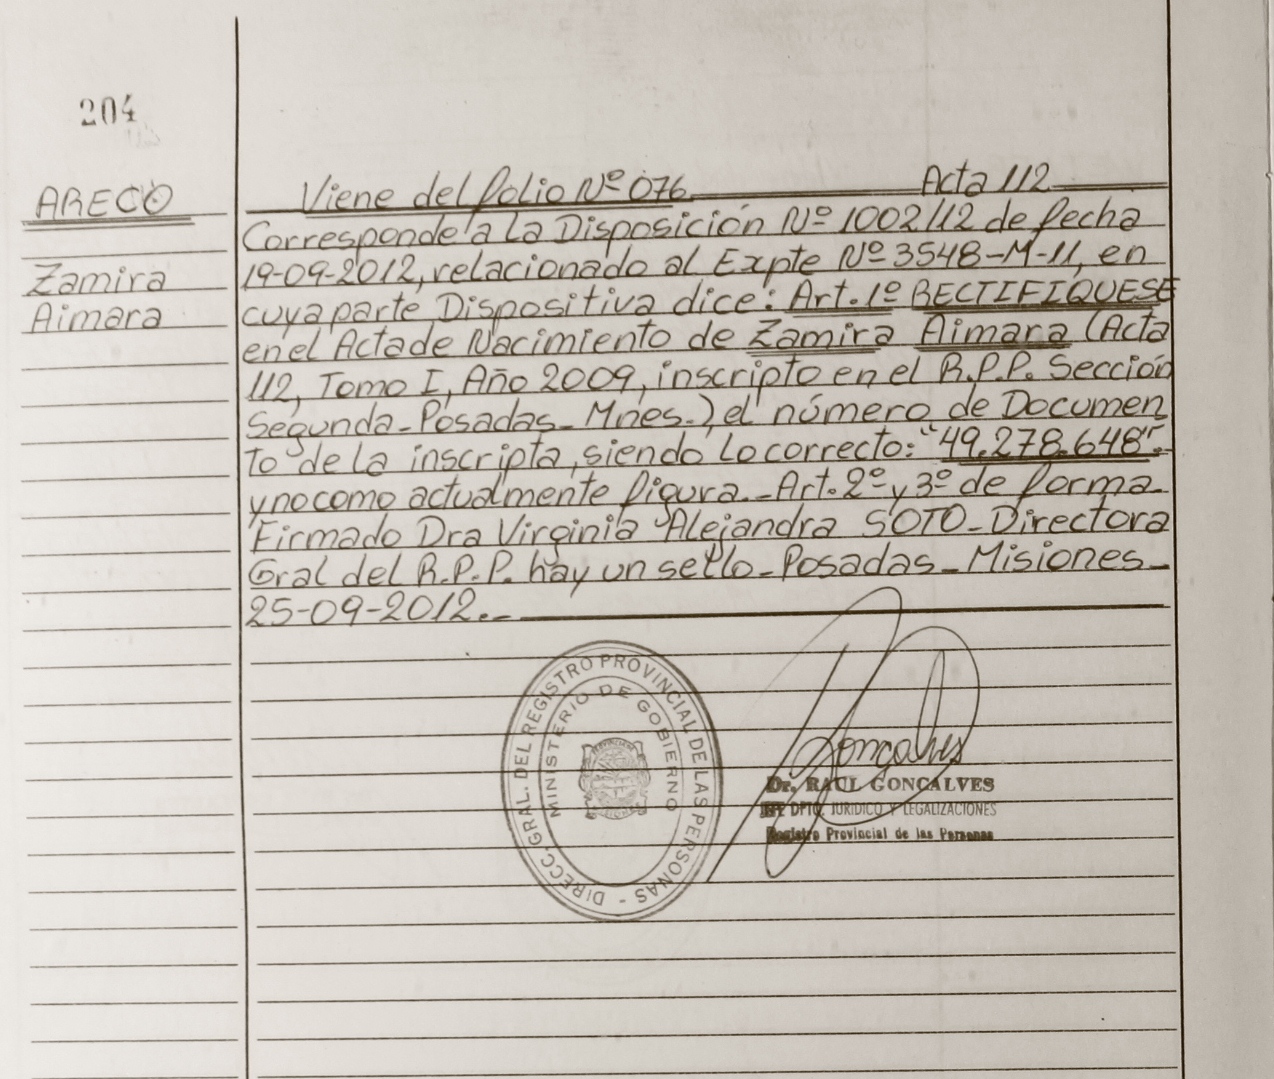 204
ARECO
Zamira
Aimara
Viene del folio Nº 076 Acta 112
Corresponde a la Disposición Nº 1002/12 de fecha
19-09-2012, relacionado al Expte Nº 3548-M-11, en
cuya parte Dispositiva dice: Art. 1º RECTIFIQUESE
en el Acta de Nacimiento de Zamira Aimara (Acta
112, Tomo I, Año 2009, inscripto en el R.P.P. Sección
Segunda-Posadas-Mnes.) el número de Documen
to de la inscripta, siendo lo correcto: "49.278.648".-
y no como actualmente figura.-Art. 2º y 3º de forma-
Firmado Dra Virginia Alejandra SOTO-Directora
Gral del R.P.P. hay un sello-Posadas-Misiones-
25-09-2012.-
DIRECC. GRAL. DEL REGISTRO PROVINCIAL DE LAS PERSONAS -
MINISTERIO DE GOBIERNO
Goncalves
Dr. RAUL GONCALVES
DPTO. JURIDICO Y LEGALIZACIONES
Registro Provincial de las Personas